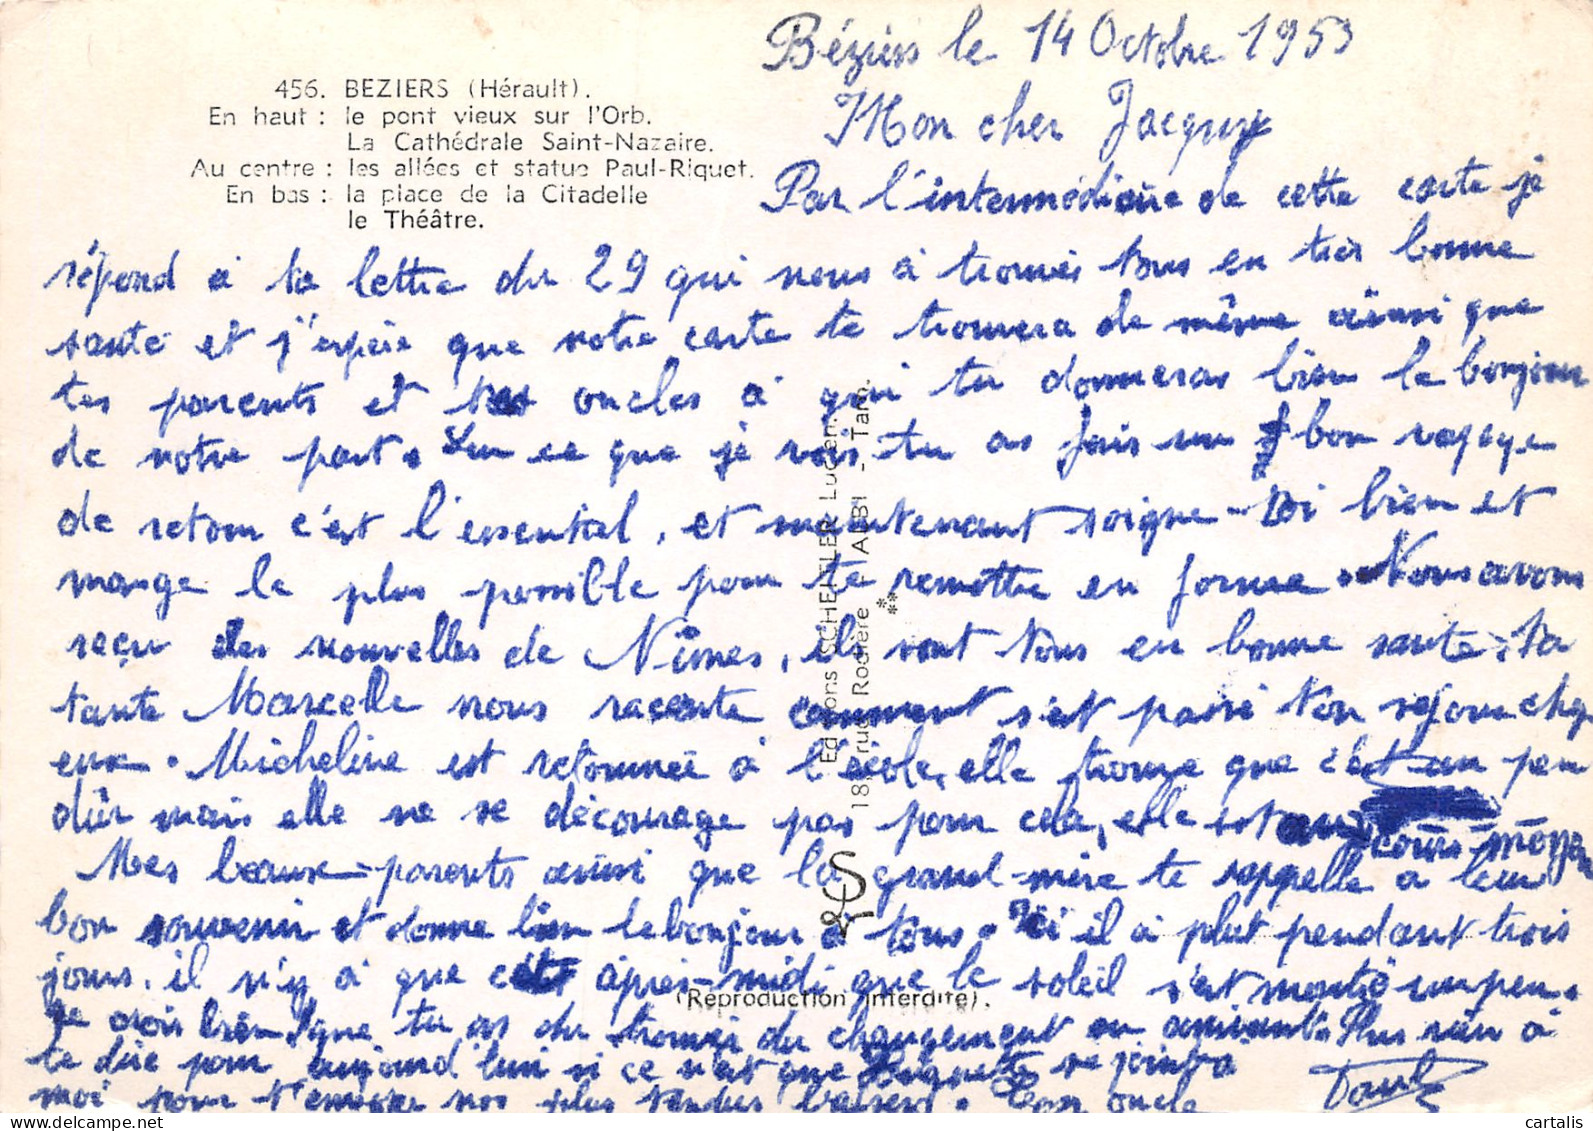 456. BEZIERS (Hérault).
En haut : le pont vieux sur l'Orb.
La Cathédrale Saint-Nazaire.
Au centre : les allées et statue Paul-Riquet.
En bas : la place de la Citadelle
le Théâtre.
Béziers le 14 Octobre 1953
Mon cher Jacques
Par l'intermédiaire de cette carte je
répond à ta lettre du 29 qui nous à trouvés tous en très bonne
santé et j'espère que notre carte te trouvera de même ainsi que
tes parents et tes oncles à qui tu donneras bien le bonjour
de notre part. Sur ce que je vois tu as fais un bon voyage
de retour c'est l'essentiel, et maintenant soigne-toi bien et
mange le plus possible pour te remettre en forme. Nous avons
reçu des nouvelles de Nîmes, ils sont tous en bonne santé. Ta
tante Marcelle nous raconte comment s'est passé ton séjour chez
eux. Micheline est retournée à l'école, elle trouve que c'est un peu
dûr mais elle ne se décourage pas pour cela, elle est au cours-moyen
Mes beaux-parents ainsi que la grand-mère te rappelle à leur
bon souvenir et donne bien le bonjour à tous. Ici il à plut pendant trois
jours, il n'y à que cet après-midi que le soleil s'est montré un peu.
Je crois bien que tu as du trouver du changement en arrivant. Plus rien à
te dire pour aujourd'hui si ce n'est que Huguette se joint à
moi pour t'envoyer nos plus tendres baisers. Ton oncle
Paul
Editions SCHEFFLER Lucien.
18, rue Rochière ALBI - Tarn.
(Reproduction Interdite).
cartalis
www.delcampe.net